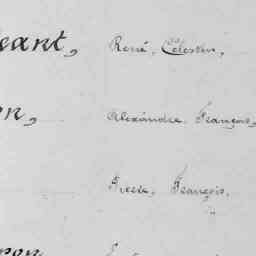 eant, René, Célestin,
on, Alexandre François,
Pierre, François,